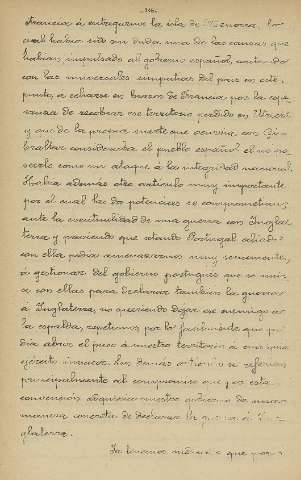 Francia á entregarnos la isla de Menorca, lo
cual habia sido sin duda una de las causas que
habian impulsado al gobierno español, unido
con las universales simpatias del pais en este
punto, á echarse en brazos de Francia por la espe-
ranza de recobrar ese territorio perdido en Utrech
y que de la propia suerte que ocurria con Gi-
braltar consideraba el pueblo español el no po-
seerlo como un ataque á la integridad nacional.
Habia además otro articulo muy importante
por el cual las dos potencias se comprometian,
ante la eventualidad de una guerra con Ingla-
terra y pudiendo que estando Portugal aliado
con ella podia amenazarnos muy seriamente,
á gestionar del gobierno portugués que se unie-
se con ellas para declarar tambien la guerra
á Inglaterra, no queriendo dejar ese enemigo á
la espalda, que por lo facilmente que po-
dia abrir el paso á nuestro territorio á cualquier
ejército invasor. Los demás se referian
principalmente al compromiso que por esta
convención adquiria nuestro gobierno de una
manera concreta de declarar la guerra á In-
glaterra.
Ya tenemos que por